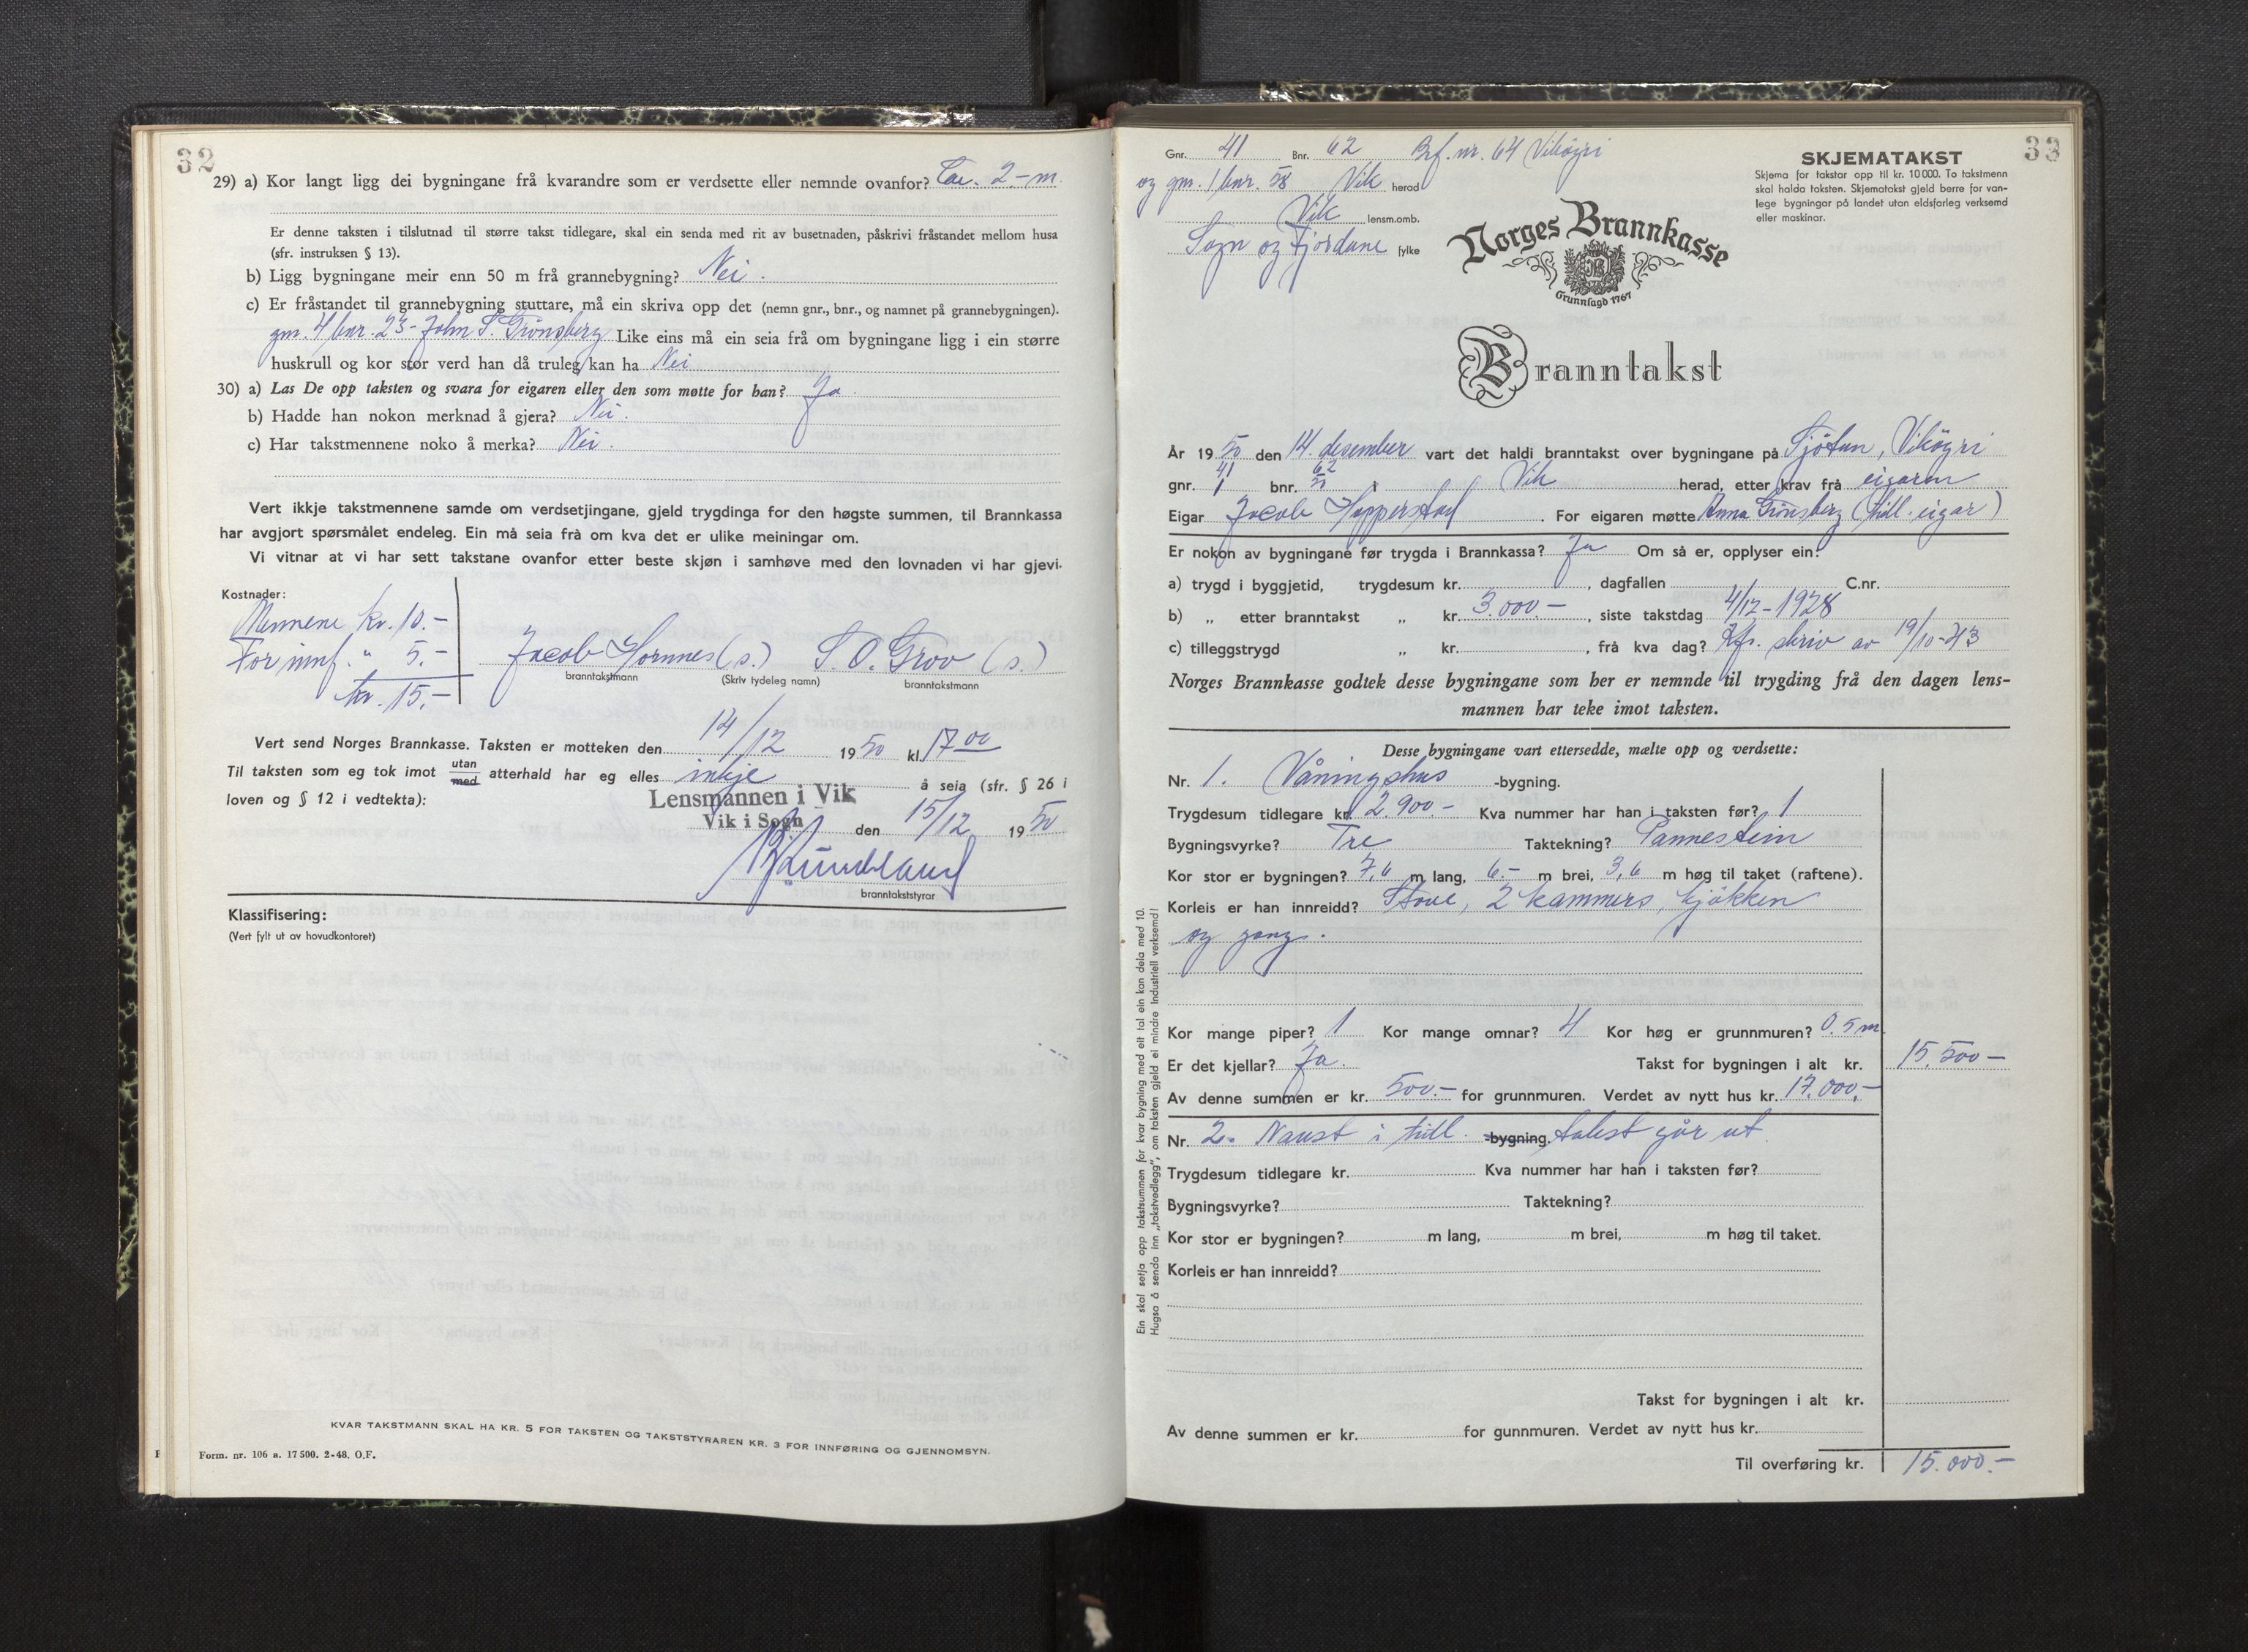 32
29) a) Kor langt ligg dei bygningane frå kvarandre som er verdsette eller nemnde ovanfor? Ca. 2.- m.
Er denne taksten i tilslutnad til større takst tidlegare, skal ein senda med rit av busetnaden, påskrivi fråstandet mellom husa
(sfr. instruksen § 13).
b) Ligg bygningane meir enn 50 m frå grannebygning? Nei.
c) Er fråstandet til grannebygning stuttare, må ein skriva opp det (nemn gnr., bnr., og namnet på grannebygningen).
gnr. 4 bnr. 23 - John S. Grönsberg Like eins må ein seia frå om bygningane ligg i ein større
huskrull og kor stor verd han då truleg kan ha Nei
30) a) Las De opp taksten og svara for eigaren eller den som møtte for han? Ja.
b) Hadde han nokon merknad å gjera? Nei.
c) Har takstmennene noko å merka? Nei.
Vert ikkje takstmennene samde om verdsetjingane, gjeld trygdinga for den høgste summen, til Brannkassa
har avgjort spørsmålet endeleg. Ein må seia frå om kva det er ulike meiningar om.
Vi vitnar at vi har sett takstane ovanfor etter beste skjøn i samhøve med den lovnaden vi har gjevi.
Kostnader:
Mennene kr. 10.-
For innf. " 5.-
kr. 15.-
Jacob Hornnes (s.) S. O. Grov (s.)
branntakstmann (Skriv tydeleg namn) branntakstmann
Vert send Norges Brannkasse. Taksten er motteken den 14/12 1950 kl. 17 00
Til taksten som eg tok imot utan med atterhald har eg elles inkje å seia (sfr. § 26 i
loven og § 12 i vedtekta):
Lensmannen i Vik
Vik i Sogn den 15/12 1950
branntakststyrar
Klassifisering:
(Vert fylt ut av hovudkontoret)
KVAR TAKSTMANN SKAL HA KR. 5 FOR TAKSTEN OG TAKSTSTYRAREN KR. 3 FOR INNFØRING OG GJENNOMSYN.
Form. nr. 106 a. 17 500. 2-48. O.F.
33
Gnr. 41 Bnr. 62 Brf. nr. 64 Vikøyri
og gnr. 1 bnr. 58 Vik herad
Vik lensm.omb.
Sogn og Fjordane fylke
SKJEMATAKST
Skjema for takstar opp til kr. 10 000. To takstmenn
skal halda taksten. Skjematakst gjeld berre for van-
lege bygningar på landet utan eldsfarleg verksemd
eller maskinar.
Norges Brannkasse
Grunnlagd 1767
Branntakst
År 1950 den 14. desember vart det haldi branntakst over bygningane på Sjötun, Vikøyri
gnr. 41 1 bnr. 62 i Vik herad, etter krav frå eigaren
Eigar Jacob Hopperstad. For eigaren møtte Anna Grönsberg (tidl. eigar)
Er nokon av bygningane før trygda i Brannkassa? Ja Om så er, opplyser ein:
a) trygd i byggjetid, trygdesum kr. , dagfallen C.nr.
b) „ etter branntakst „ kr. 3.000 - , siste takstdag 4/12 - 1928
c) tilleggstrygd „ kr. , frå kva dag? Kfr. skriv av 19/10-43
Norges Brannkasse godtek desse bygningane som her er nemnde til trygding frå den dagen lens-
mannen har teke imot taksten.
Desse bygningane vart ettersedde, mælte opp og verdsette:
Nr. 1. Våningshus -bygning.
Trygdesum tidlegare kr. 2.900.- Kva nummer har han i taksten før? 1
Bygningsvyrke? Tre Taktekning? Pannestein
Kor stor er bygningen? 7,6 m lang, 6.- m brei, 3,6 m høg til taket (raftene).
Korleis er han innreidd? Stove, 2 kammers, kjökken
og gang.
Kor mange piper? 1 Kor mange omnar? 4 Kor høg er grunnmuren? 0.5 m.
Er det kjellar? Ja. Takst for bygningen i alt kr. 15.500 -
Av denne summen er kr. 500.- for grunnmuren. Verdet av nytt hus kr. 17.000.-
Nr. 2. Naust i tidl. -bygning. takst går ut.
Trygdesum tidlegare kr. Kva nummer har han i taksten før?
Bygningsvyrke? Taktekning?
Kor stor er bygningen? m lang, m brei, m høg til taket.
Korleis er han innreidd?
Takst for bygningen i alt kr.
Av denne summen er kr. for gunnmuren. Verdet av nytt hus kr.
Til overføring kr. 15.000.-
Ein skal setja opp takstsummen for kvar bygning med eit tal ein kan dela med 10.
Hugsa å senda inn „takstvedlegg", om taksten gjeld ei mindre industriell verksemd!